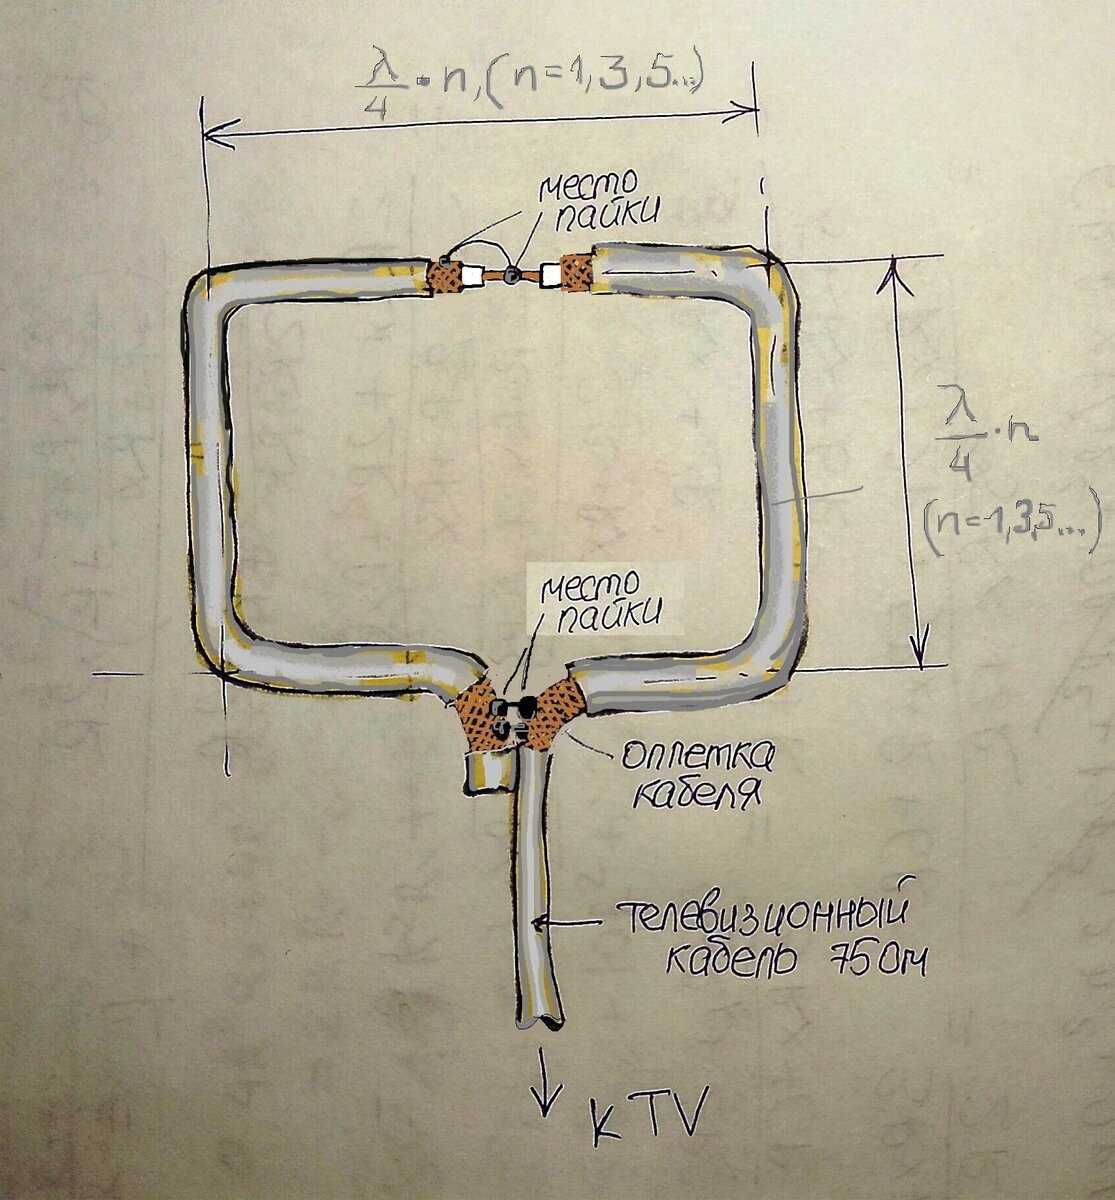 λ/4 · n, (n=1,3,5...)
место
пайки
λ/4 · n
(n=1,3,5...)
место
пайки
оплетка
кабеля
телевизионный
кабель 75 Ом
к TV